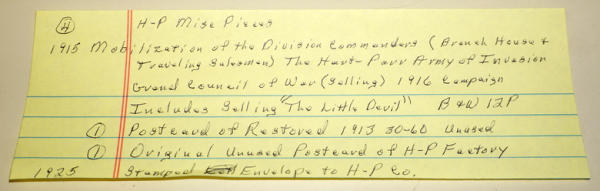 ④ H-P Misc Pieces
1915 Mobilization of the Division Commanders (Branch House +
Traveling Salesmen) The Hart-Parr Army of Invasion
Grand Council of War (Selling) 1916 Campaign
Includes Selling "The Little Devil" B&W 12P
① Postcard of Restored 1913 30-60 Unused
① Original Unused Postcard of H-P Factory
1925 Stamped Envelope to H-P Co.